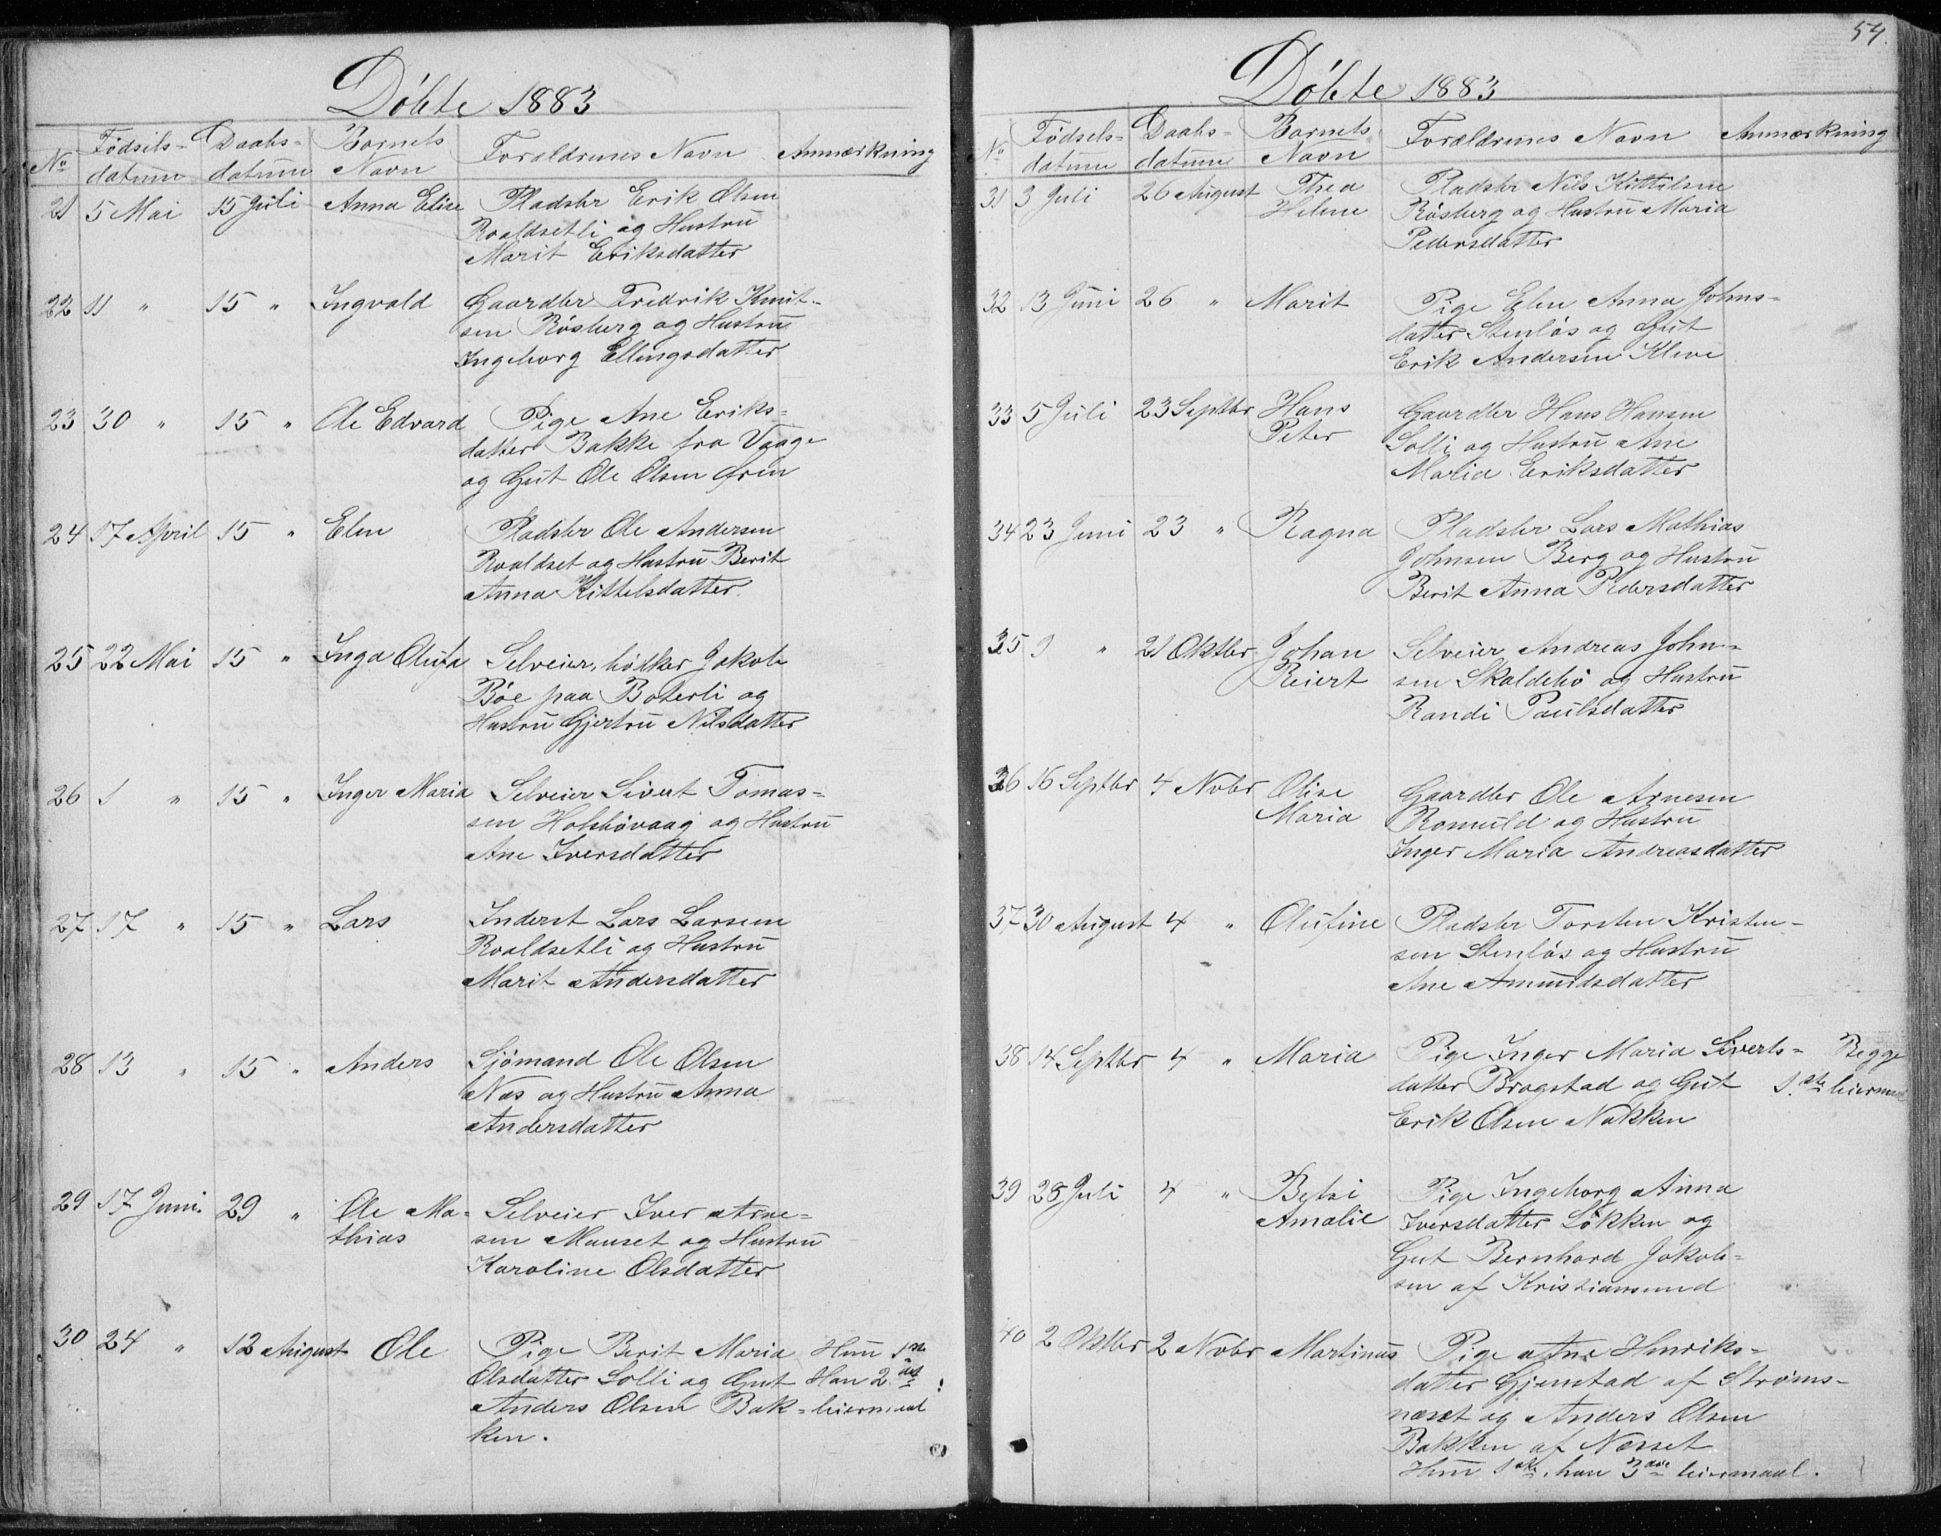 Döbte 1883
No Födsels- datum Daabs- datum Barnets Navn Forældrenes Navn Anmærkning
21 5 Mai 15 Juli Anna Elise Pladsbr Erik Olsen
Roaldsetli og Hustru
Marit Eriksdatter
22 11 " 15 " Ingvald Gaardbr Fredrik Knut-
sen Rösberg og Hustru
Ingeborg Ellingsdatter
23 30 " 15 " Ole Edvard Pige Ane Eriks-
datter Bakke fra Vaage
og Gut Ole Olsen
24 17 April 15 " Elen Pladsbr Ole Andersen
Roaldset og Hustru Berit
Anna Kittelsdatter.
25 22 Mai 15 " Inga Olufa Selveier, bödker Jakob
Böe paa Boterli og
Hustru Gjertru Nilsdatter
26 1 " 15 " Inger Maria Selveier Sivert Tomas-
sen Holsbövaag og Hustru
Ane Iversdatter
27 17 " 15 " Lars Inderst Lars Larsen
Roaldsetli og Hustru
Marit Andersdatter
28 13 " 15 " Anders Sjömand Ole Olsen
Næs og Hustru Anna
Andersdatter
29 17 Juni 29 " Ole Ma- Selveier Iver Arne-
thias sen Mauset og Hustru
Karoline Olsdatter
30 24 " 12 August Ole Pige Berit Maria Hun 1ste
Olsdatter Solli og Gut Han 2det
Anders Olsen Bak- leiermaal
ken.
54.
Döbte 1883
No Födsels- datum Daabs- datum Barnets Navn Forældrenes Navn Anmærkning
31 3 Juli 26 August Thea Pladsbr Nils Kittilsen
Helene Rösberg og Hustru Maria
Pedersdatter
32 13 Juni 26 " Marit Pige Elen Anna Johns-
datter Stenlös og Gut
Erik Andersen Kleve
33 5 Juli 23 Septbr Hans Gaardbr Hans Hansen
Peter Solli og Hustru Ane
Maria Eriksdatter
34 23 Juni 23 " Ragna Pladsbr Lars Mathias
Johnsen Berg og Hustru
Berit Anna Pedersdatter
35 9 " 21 Oktbr Johan Selveier Andreas John-
Reiert sen Skaldebö og Hustru
Randi Paulsdatter
36 16 Septbr 4 Nobr Olise Gaardbr Ole Arnesen
Maria Romuld og Hustru
Inger Maria Andreasdatter
37 30 August 4 " Olufine Pladsbr Torsten Kristen-
sen Stenlös og Hustru
Ane Amundsdatter
38 14 Septbr 4 " Maria Pige Inger Maria Siverts- Begge
datter Bragstad og Gut 1ste leiermaal
Erik Olsen Nakken
39 28 Juli 4 " Betsi Pige Ingeborg Anna
Amalie Iversdatter Lökken og
Gut Bernhard Jakob-
sen af Kristiansund
40 2 Oktbr 2 Nobr Martinus Pige Ane Henriks-
datter Gjenstad af Ströms-
næset og Anders Olsen
Bakken af Nesset
Hun 1ste, han 3die leiermaal.